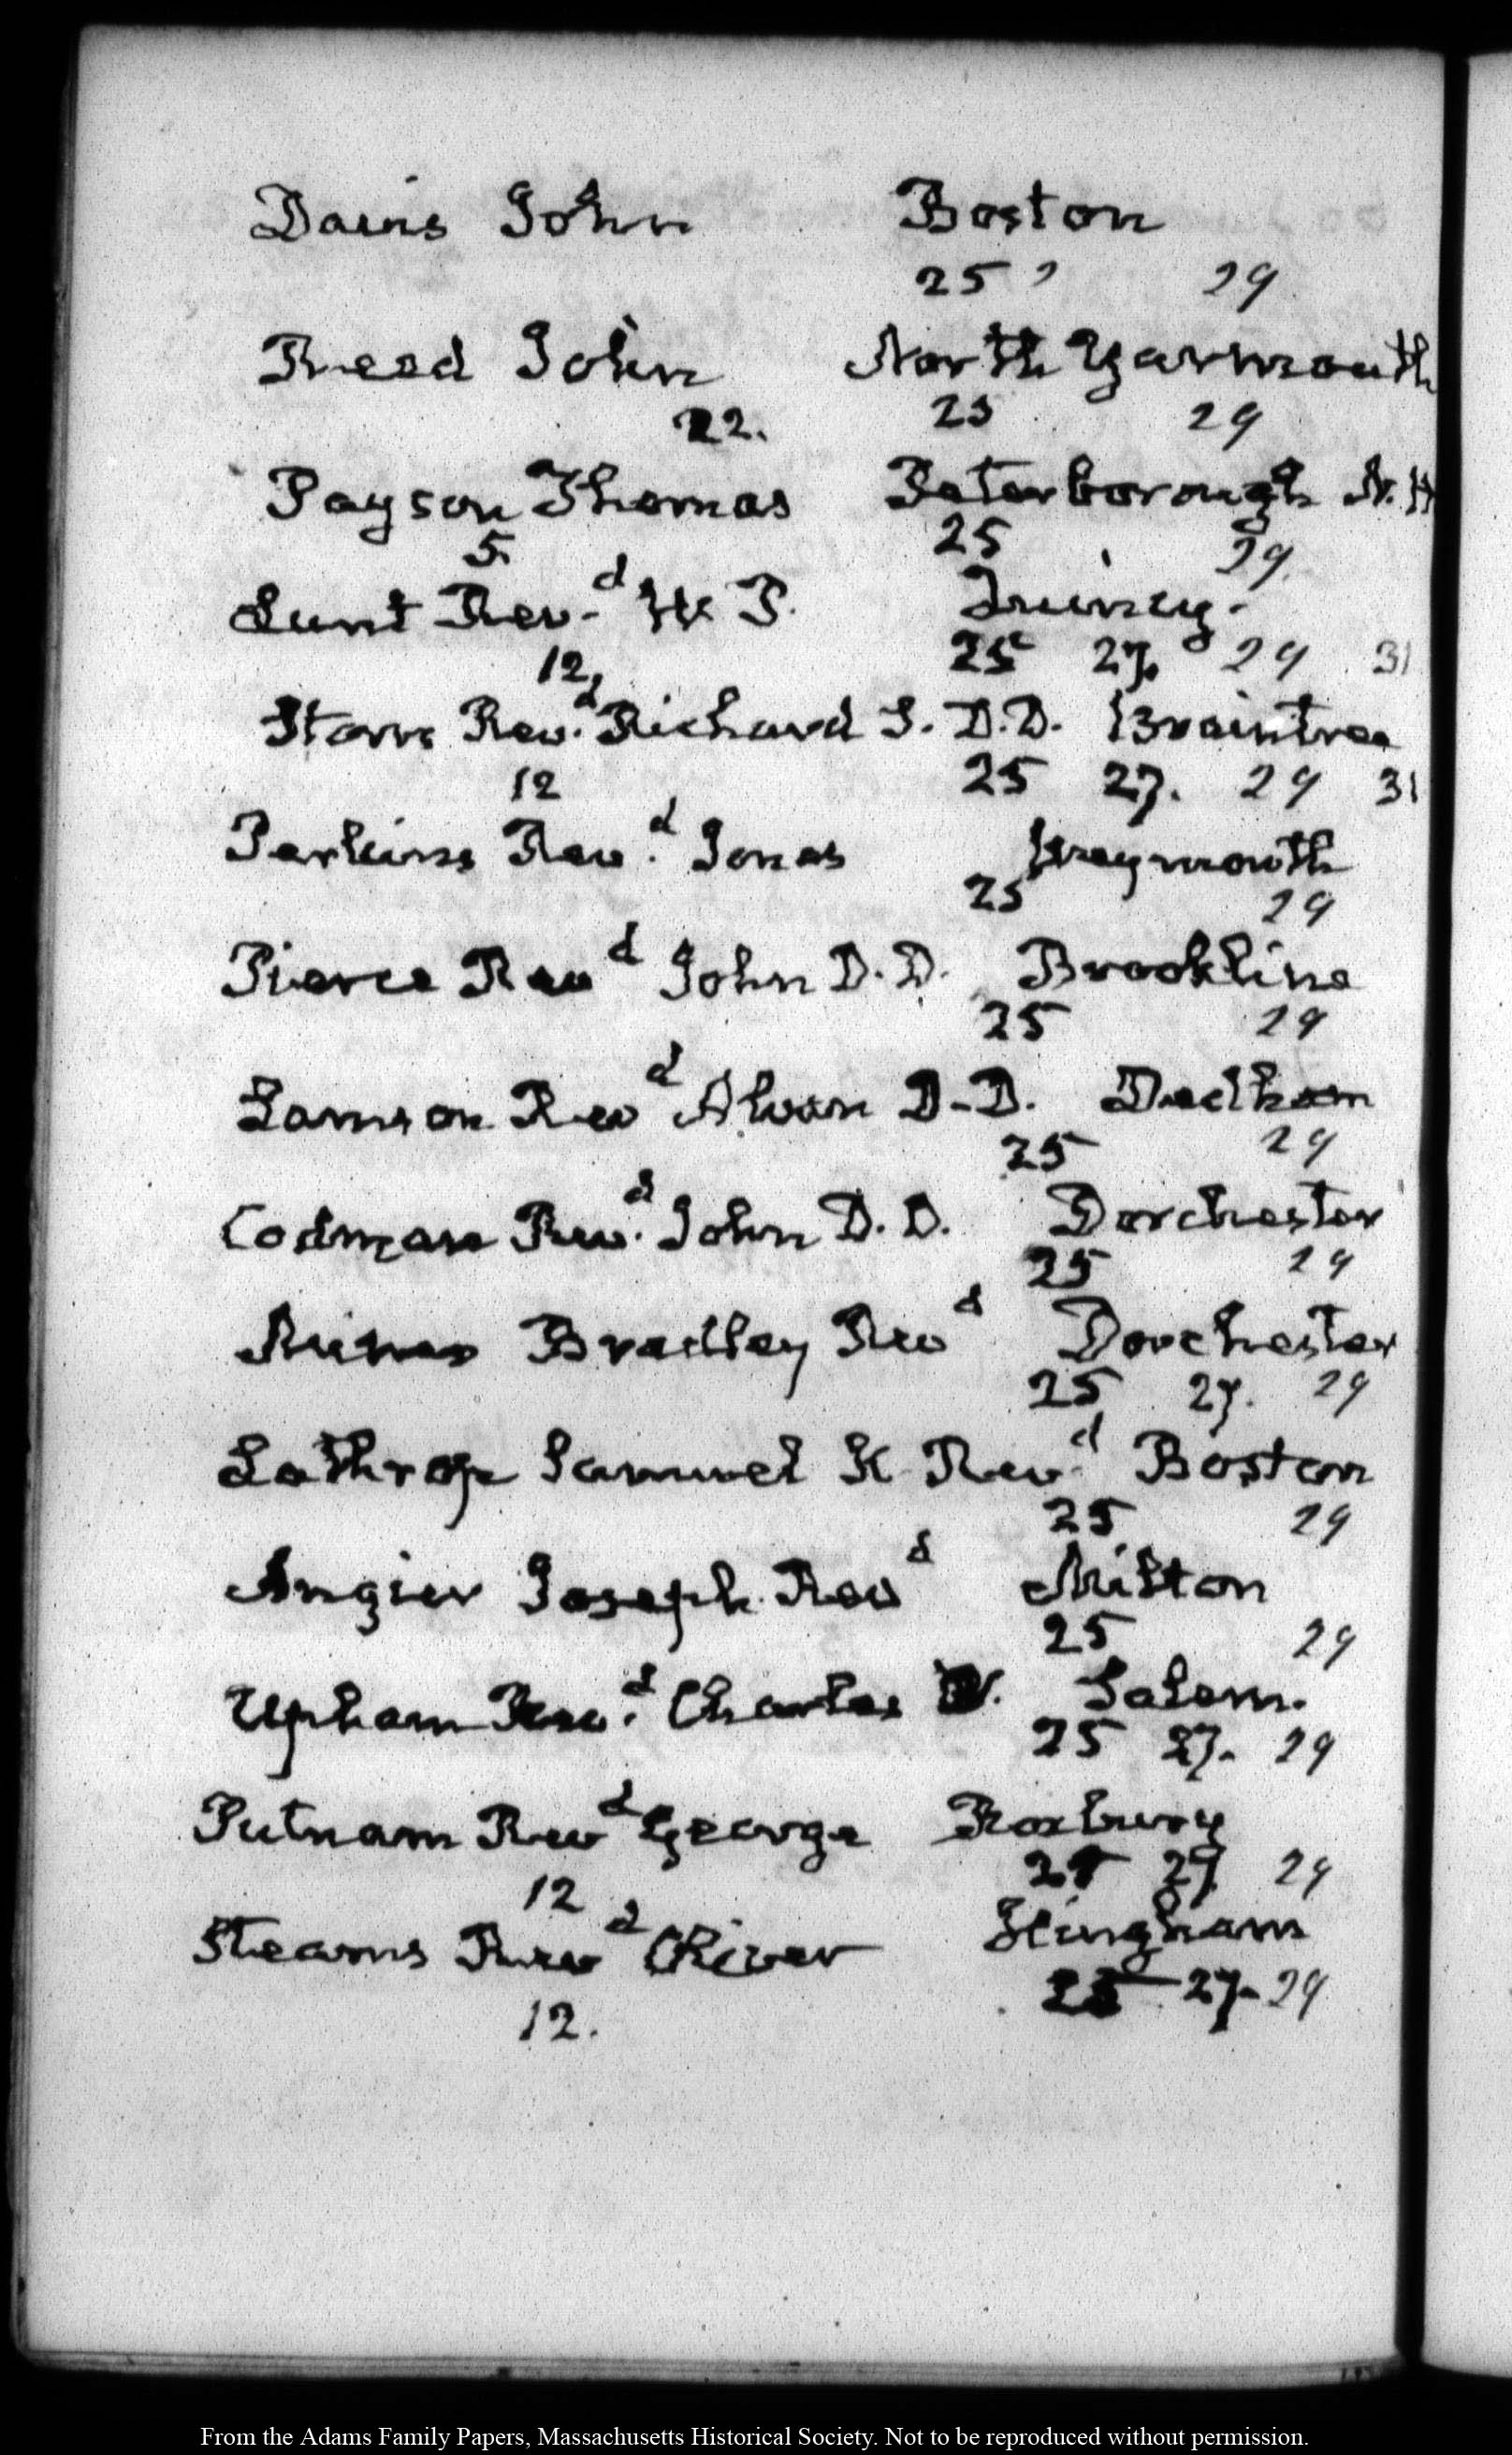 Davis John Boston
25, 29
Reed John North Yarmouth
22. 25 29
Payson Thomas Peterborough N. H
5. 25 29.
Lunt Rev.d W P. Quincy.
12, 25 27. 29 31
Storrs Rev.d Richard S. D.D. Braintree
12 25 27. 29 31
Perkins Rev.d Jonas Weymouth
25 29
Pierce Revd John D. D. Brookline
25 29
Lamson Revd Alvan D-D. Dedham
25 29
Codman Rev.d John D. D. Dorchester
25 29
Bradley Revd Dorchester
25 27. 29
Lothrop Samuel K Revd Boston
25 29
Angier Joseph Revd Milton
25 29
Upham Rev.d Charles W. Salem.
25 27. 29
Putnam Revd George Roxbury
12 25 27 29
Stearns Revd Oliver Hingham
12. 25 27-29
From the Adams Family Papers, Massachusetts Historical Society. Not to be reproduced without permission.